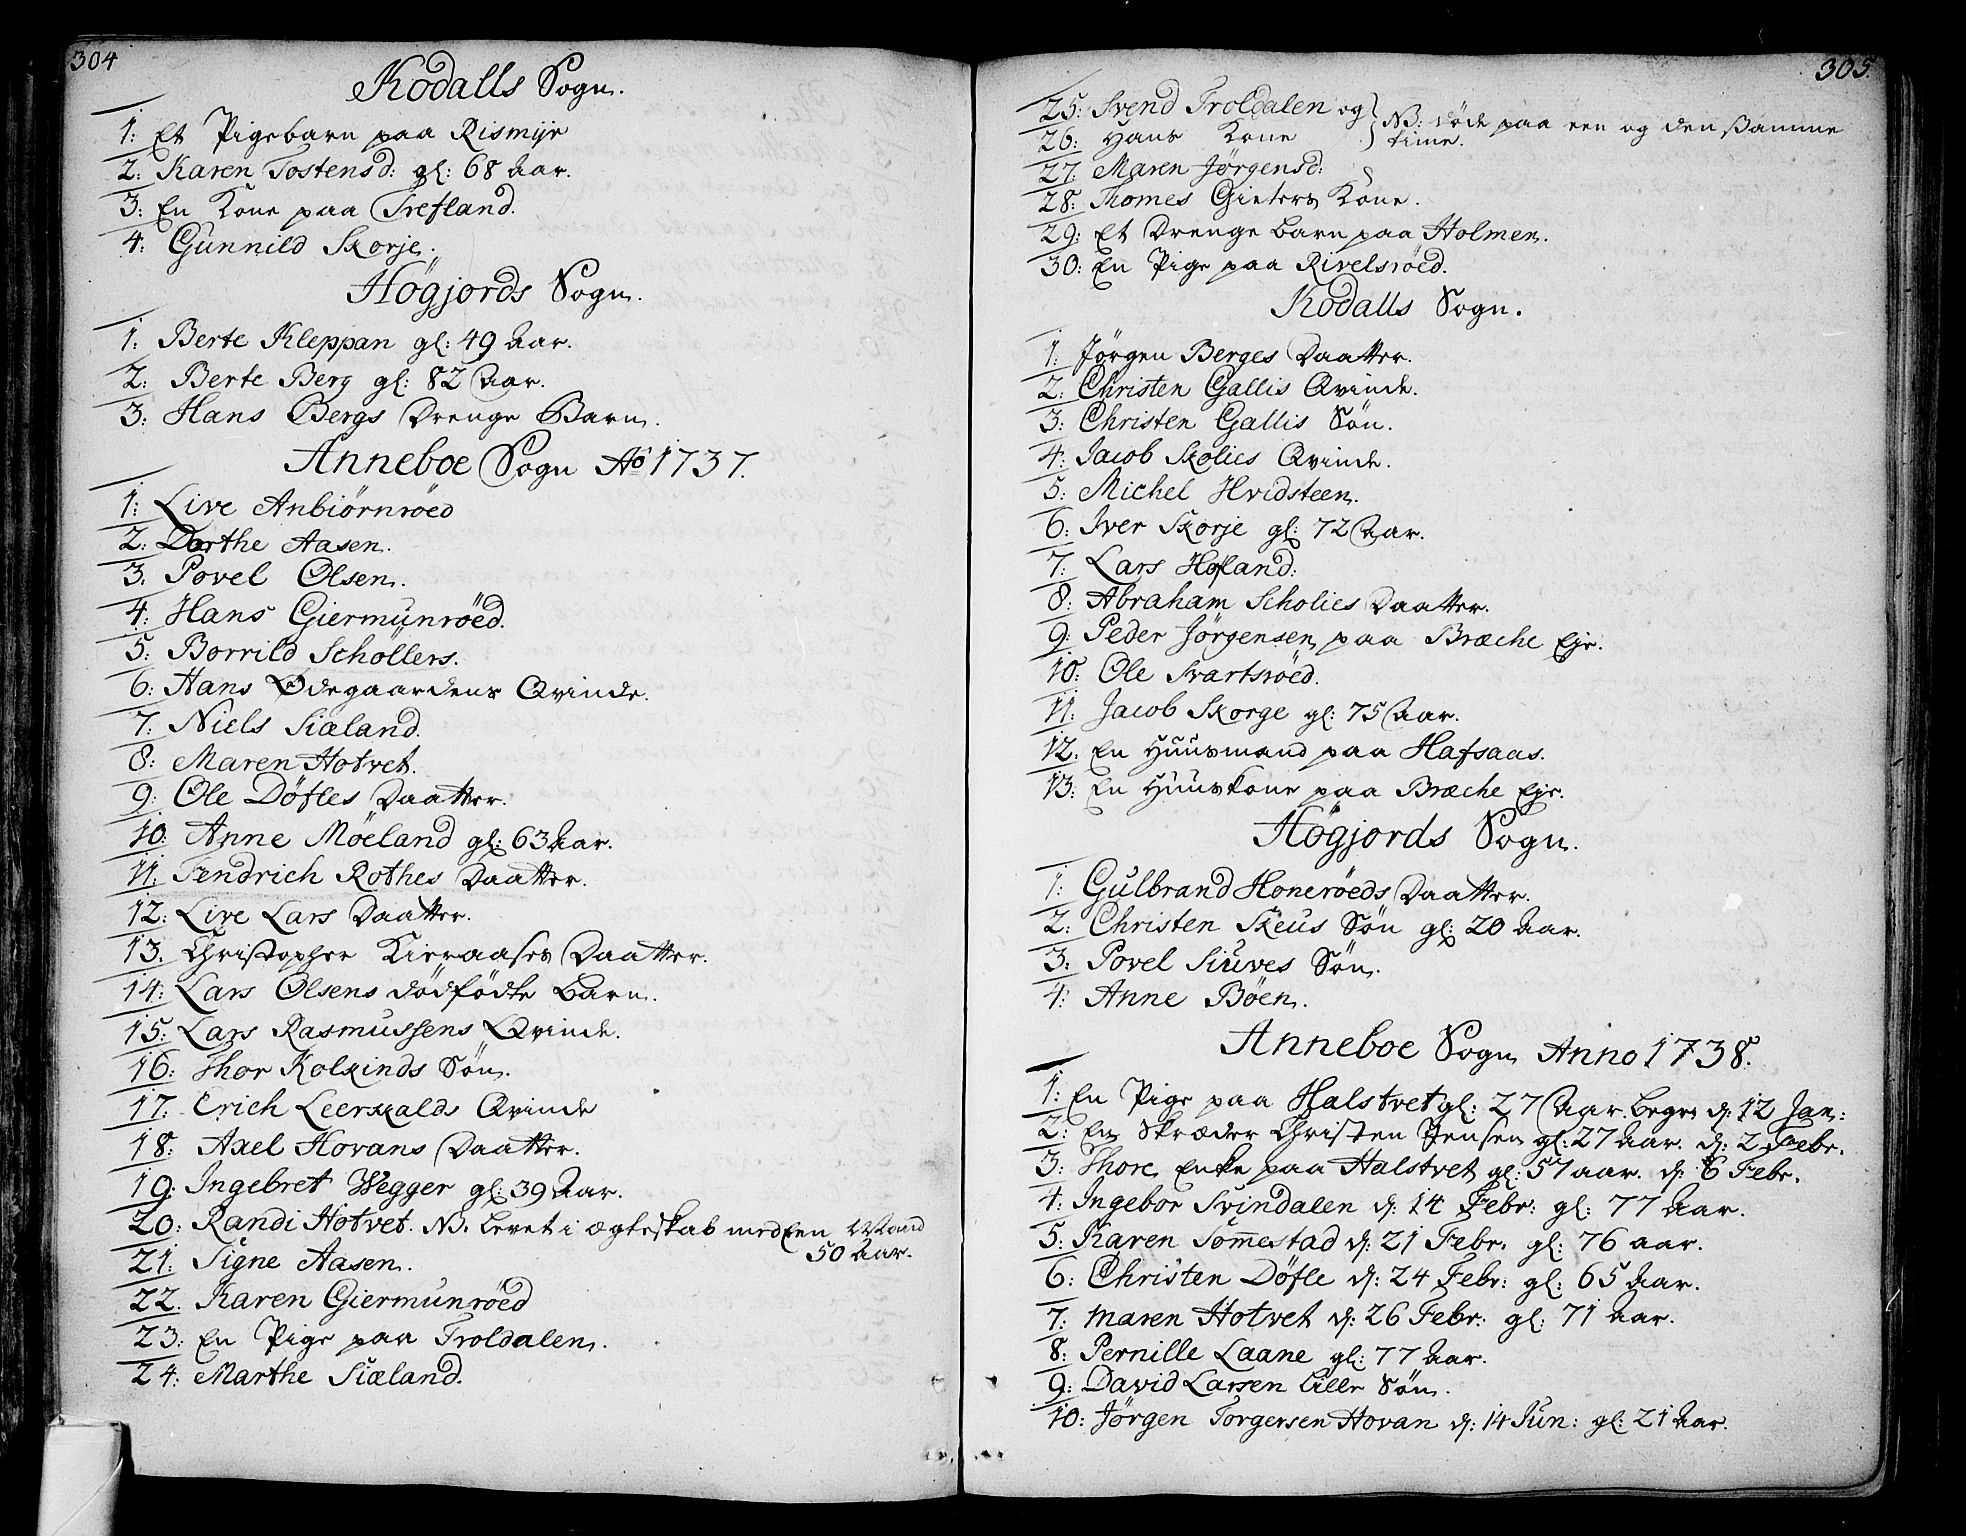 304
Kodalls Sogn.
1: Et Pigebarn paa Rismyr
2: Karen Tostensd: gl: 68 Aar.
3: En Kone paa Trefland.
4: Gunnild Skorje.
Högjords Sogn.
1: Berte Kleppan gl: 49 Aar.
2: Berte Berg gl: 82 Aar.
3: Hans Bergs Drenge Barn.
Anneboe Sogn Aō 1737.
1: Live Anbiörnröed
2: Dorthe Aasen.
3: Povel Olsen.
4: Hans Giermunröed.
5: Borrild Schöllers.
6: Hans Ødegaardens Qvinde.
7: Niels Siæland.
8: Maren Hotvet.
9: Ole Döfles Daatter.
10: Anne Möeland gl: 63 Aar.
11: Fendrich Rothes Daatter.
12: Live Lars Daatter.
13. Christopher Kieraases Daatter.
14: Lars Olsens dödfödte Barn.
15: Lars Rasmussens Qvinde.
16: Thor Kolkinds Sön.
17: Erich Leerkalds Qvinde
18: Axel Hovans Daatter.
19: Ingebret Wegger gl: 39 Aar.
20: Randi Hotvet. NB. levet i ægteskab med Een Mand
50 Aar.
21: Signe Aasen.
22. Karen Giermunröed
23: En Pige paa Troldalen.
24: Marthe Siæland.
305.
25: Svend Troldalen og
26: Hans Kone } NB: döde paa een og den samme
time.
27: Maren Jörgensd:
28: Thomes Gieters Kone.
29: Et Drenge barn paa Holmen.
30: En Pige paa Rivelsröed.
Kodalls Sogn.
1: Jörgen Berges Daatter.
2: Christen Gallis Qvinde.
3: Christen Gallis Sön.
4: Jacob Skolies Qvinde.
5: Michel Hvidsteen.
6: Iver Skorje gl: 72 Aar.
7: Lars Hofland:
8: Abraham Scholies Daatter.
9: Peder Jörgensen paa Bræche Eje.
10: Ole Svartsröed.
11: Jacob Skorge gl: 75 Aar.
12. En Huusmand paa Hafsaas.
13: En Huuskone paa Bræche Eje.
Högjords Sogn.
1: Gulbrand Honeröeds Daatter.
2: Christen Skeus Sön gl: 20 Aar.
3: Povel Siuves Sön.
4: Anne Böen.
Anneboe Sogn Anno 1738.
1: En Pige paa Halstvet gl: 27 Aar. begr: d: 12 Jan:
2: En Skræder Christen Jensen gl: 27 Aar. d: 2 Febr.
3: Thore Enke paa Halstvet gl: 57 aar. d: 6 Febr.
4: Ingebor Svindalen d: 14 Febr: gl: 77 Aar.
5: Karen Tom̄estad d: 21 Febr. gl: 76 aar.
6: Christen Döfle d: 24 Febr: gl: 65 Aar.
7: Maren Hotvet d: 26 Febr: gl: 71 Aar.
8: Pernille Laane gl: 77 Aar.
9: David Larsen lille Sön.
10: Jörgen Torgersen Hovan d: 14 Jun: gl: 21 Aar.